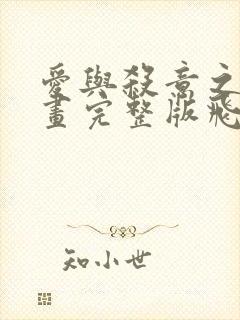 愛與殺意之
畫完整版飛
知小世